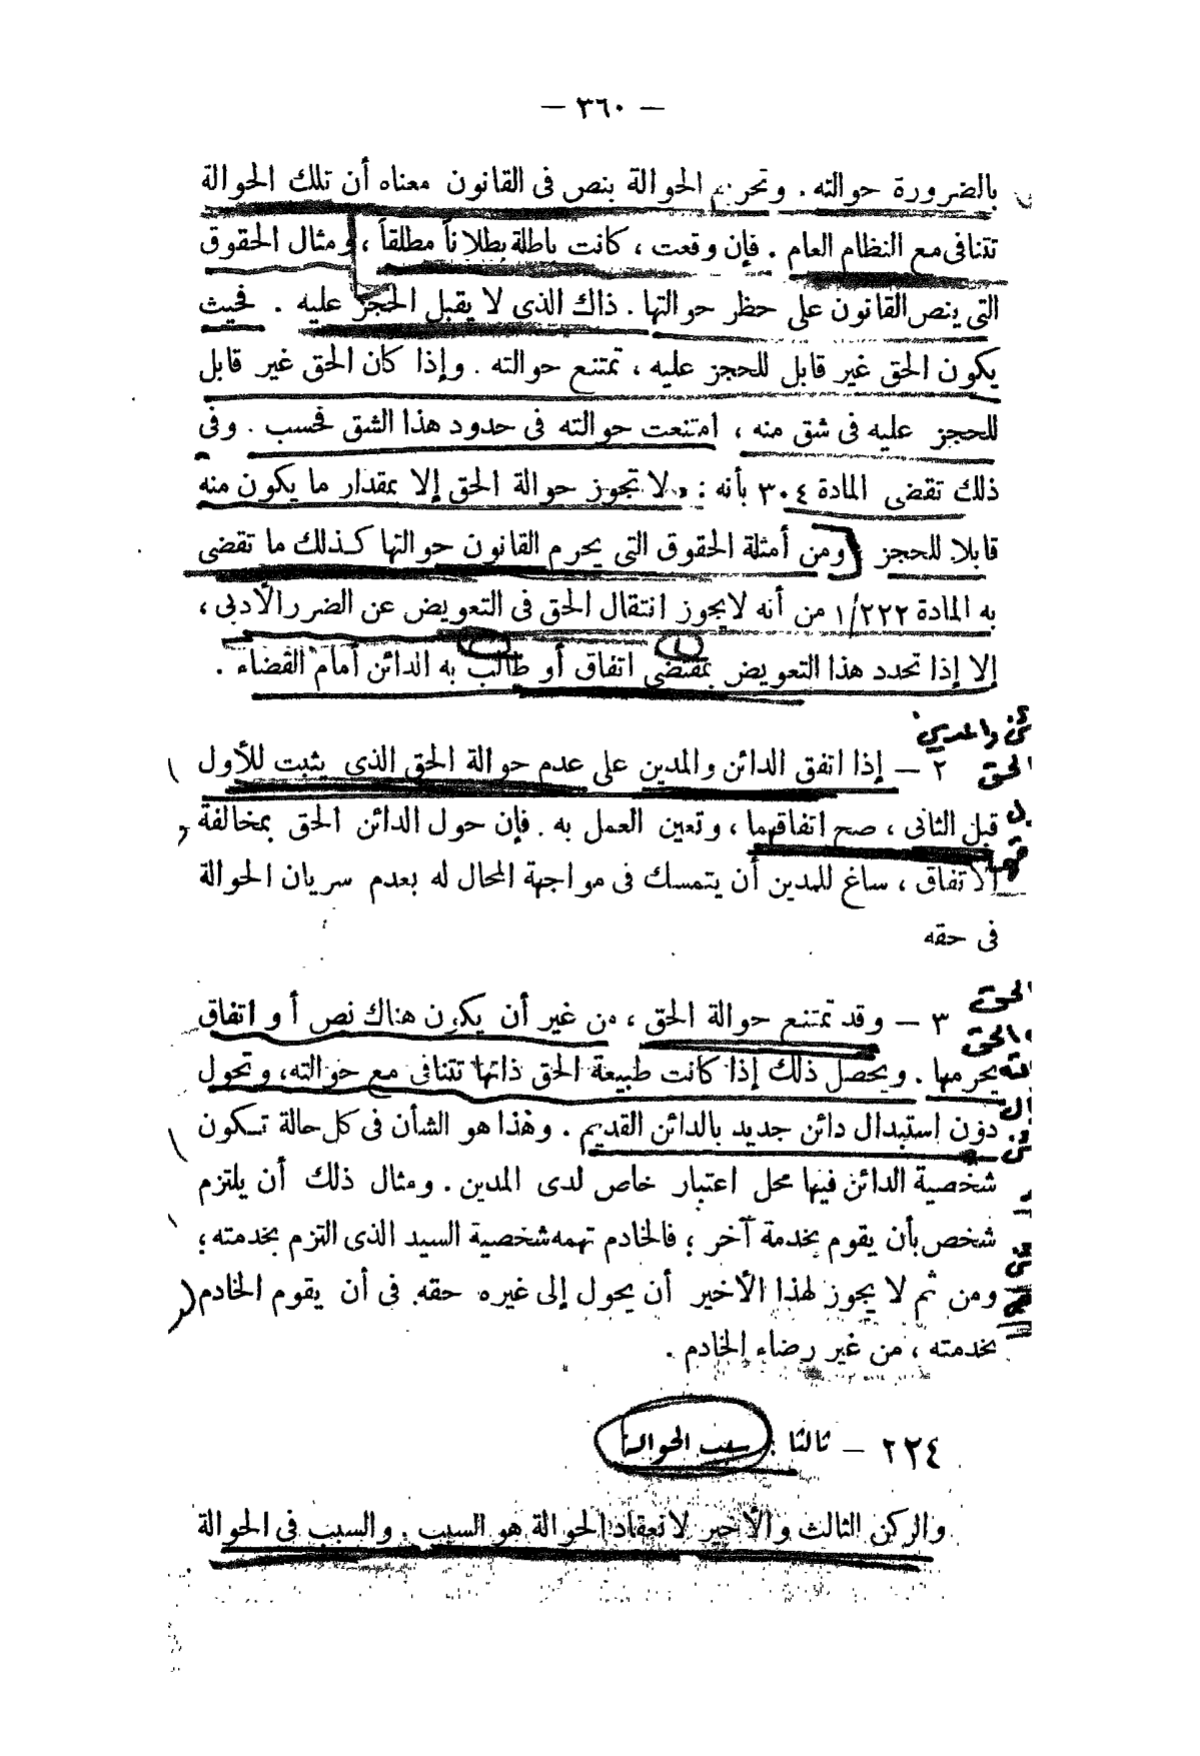 — ٣٦٠ —
بالضرورة حوالته . وتحريم الحوالة بنص فى القانون معناه أن تلك الحوالة
تتنافى مع النظام العام . فإن وقعت ، كانت باطلة بطلاناً مطلقاً ، ومثال الحقوق
التى ينص القانون على حظر حوالتها . ذاك الذى لا يقبل الحجز عليه . فحيث
يكون الحق غير قابل للحجز عليه ، تمتنع حوالته . وإذا كان الحق غير قابل
للحجز عليه فى شق منه ، امتنعت حوالته فى حدود هذا الشق فحسب . وفى
ذلك تقضى المادة ٣٠٤ بأنه : « لا تجوز حوالة الحق إلا بمقدار ما يكون منه
قابلا للحجز ومن أمثلة الحقوق التى يحرم القانون حوالتها كذلك ما تقضى
به المادة ١/٢٢٢ من أنه لا يجوز انتقال الحق فى التعويض عن الضرر الأدبى ،
إلا إذا تحدد هذا التعويض بمقتضى اتفاق أو طالب به الدائن أمام القضاء .
ئن والمدين
الحق ٢ — إذا اتفق الدائن والمدين على عدم حوالة الحق الذى يثبت للأول
قبل الثانى ، صح اتفاقهما ، وتعين العمل به . فإن حول الدائن الحق بمخالفة
الاتفاق ، ساغ للمدين أن يتمسك فى مواجهة المحال له بعدم سريان الحوالة
فى حقه
الحق
٣ — وقد تمتنع حوالة الحق ، من غير أن يكون هناك نص أو اتفاق
الحق
يحرمها . ويحصل ذلك إذا كانت طبيعة الحق ذاتها تتنافى مع حوالته، وتحول
دون استبدال دائن جديد بالدائن القديم . وهذا هو الشأن فى كل حالة تكون
شخصية الدائن فيها محل اعتبار خاص لدى المدين . ومثال ذلك أن يلتزم
شخص بأن يقوم بخدمة آخر ؛ فالخادم تهمه شخصية السيد الذى التزم بخدمته ؛
ومن ثم لا يجوز لهذا الأخير أن يحول إلى غيره حقه فى أن يقوم الخادم
بخدمته ، من غير رضاء الخادم .
٢٢٤ — ثالثا : سبب الحوالة
والركن الثالث والأخير لانعقاد الحوالة هو السبب . والسبب فى الحوالة